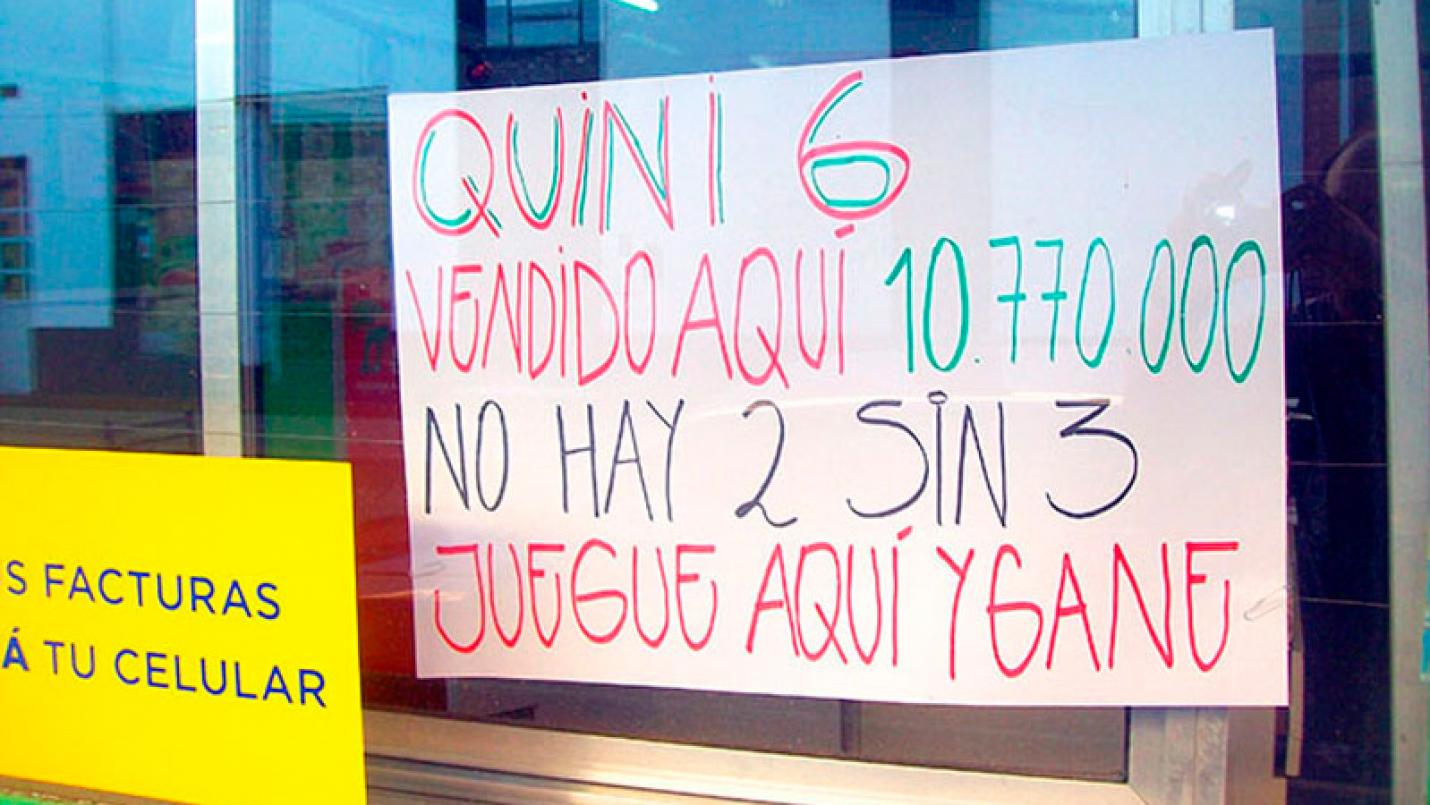 QUINI 6
VENDIDO AQUÍ 10.770.000
NO HAY 2 SIN 3
JUEGUE AQUÍ Y GANE
S FACTURAS
Á TU CELULAR